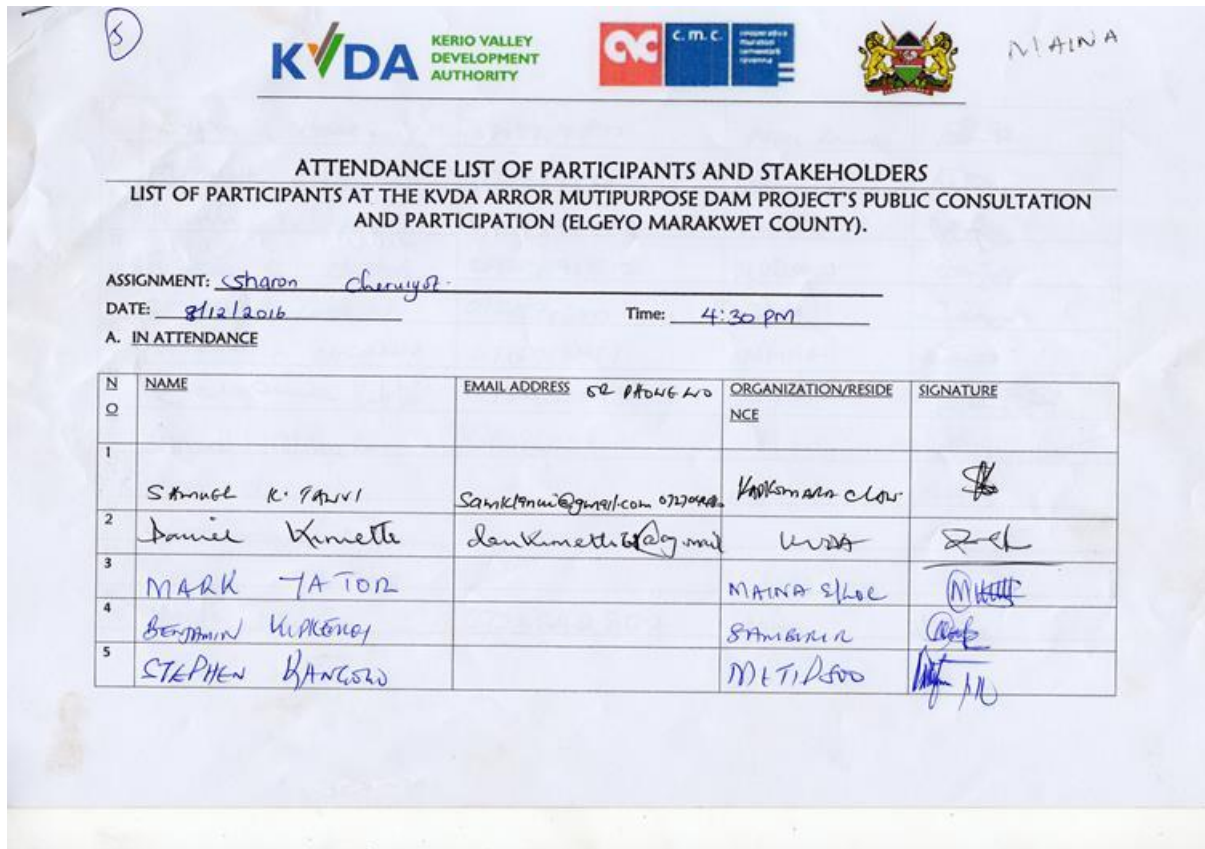 5
KVDA KERIO VALLEY
DEVELOPMENT
AUTHORITY
c. m. c.
MAINA
ATTENDANCE LIST OF PARTICIPANTS AND STAKEHOLDERS
LIST OF PARTICIPANTS AT THE KVDA ARROR MUTIPURPOSE DAM PROJECT'S PUBLIC CONSULTATION
AND PARTICIPATION (ELGEYO MARAKWET COUNTY).
ASSIGNMENT: Sharon Cheruiyot.
DATE: 8/12/2016 Time: 4:30 PM
A. IN ATTENDANCE
NO NAME EMAIL ADDRESS OR PHONE NO ORGANIZATION/RESIDENCE SIGNATURE
1 SAMUEL K. TANUI
2 Daniel Kimette KVDA
3 MARK YATOR MAINA S/LOC
4 BENJAMIN SAMBIRIR
5 STEPHEN